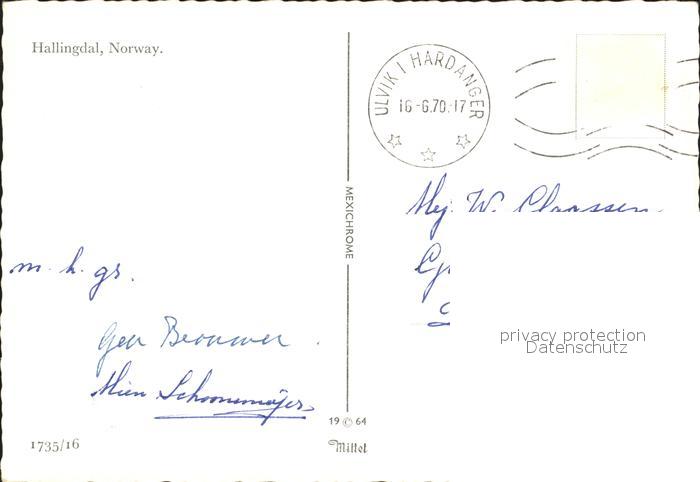 Hallingdal, Norway.
ULVIK I HARDANGER
16-6.70.-17
MEXICHROME
Mej. W. Claassen.
m. h. gr.
Geer Brouwer.
Mien Schoonemeijer
privacy protection
Datenschutz
19 © 64
Mittet
1735/16